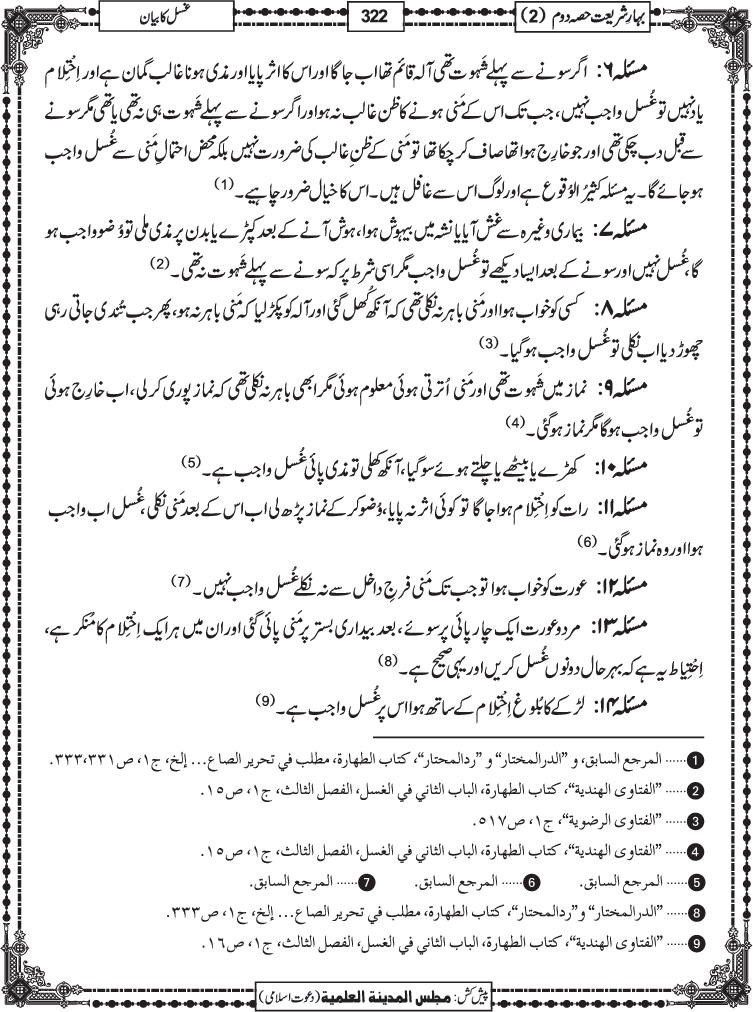 بہارِ شریعت حصہ دوم (2)
322
غسل کا بیان
مسئلہ ۶: اگر سونے سے پہلے شَہوت تھی آلہ قائم تھا اب جاگا اور اس کا اثر پایا اور مذی ہونا غالب گمان ہے اور اِحْتِلام
یاد نہیں تو غُسل واجب نہیں، جب تک اس کے مَنی ہونے کا ظن غالب نہ ہو اور اگر سونے سے پہلے شَہوت ہی نہ تھی یا تھی مگر سونے
سے قبل دب چکی تھی اور جو خارِج ہوا تھا صاف کر چکا تھا تو مَنی کے ظنِ غالب کی ضرورت نہیں بلکہ محض احتمالِ مَنی سے غُسل واجب
ہو جائے گا۔ یہ مسئلہ کثیرُ الوُقوع ہے اور لوگ اس سے غافل ہیں۔ اس کا خیال ضرور چاہیے۔ (1)
مسئلہ ۷: بیماری وغیرہ سے غش آیا یا نشہ میں بیہوش ہوا، ہوش آنے کے بعد کپڑے یا بدن پر مذی ملی تو وُضو واجب ہو
گا، غُسل نہیں اور سونے کے بعد ایسا دیکھے تو غُسل واجب مگر اسی شرط پر کہ سونے سے پہلے شَہوت نہ تھی۔ (2)
مسئلہ ۸: کسی کو خواب ہوا اور مَنی باہر نہ نکلی تھی کہ آنکھ کُھل گئی اور آلہ کو پکڑ لیا کہ مَنی باہر نہ ہو، پھر جب تُندی جاتی رہی
چھوڑ دیا اب نکلی تو غُسل واجب ہو گیا۔ (3)
مسئلہ ۹: نماز میں شَہوت تھی اور مَنی اُترتی ہوئی معلوم ہوئی مگر ابھی باہر نہ نکلی تھی کہ نماز پوری کر لی، اب خارِج ہوئی
تو غُسل واجب ہوگا مگر نماز ہوگئی۔ (4)
مسئلہ ۱۰: کھڑے یا بیٹھے یا چلتے ہوئے سو گیا، آنکھ کھلی تو مذی پائی غُسل واجب ہے۔ (5)
مسئلہ ۱۱: رات کو اِحْتِلام ہوا جاگا تو کوئی اثر نہ پایا، وُضو کر کے نماز پڑھ لی اب اس کے بعد مَنی نکلی، غُسل اب واجب
ہوا اور وہ نماز ہو گئی۔ (6)
مسئلہ ۱۲: عورت کو خواب ہوا تو جب تک مَنی فرجِ داخل سے نہ نکلے غُسل واجب نہیں۔ (7)
مسئلہ ۱۳: مرد و عورت ایک چارپائی پر سوئے، بعد بیداری بستر پر مَنی پائی گئی اور ان میں ہر ایک اِحْتِلام کا مُنکر ہے،
اِحْتِیاط یہ ہے کہ بہر حال دونوں غُسل کریں اور یہی صحیح ہے۔ (8)
مسئلہ ۱۴: لڑکے کا بُلوغ اِحْتِلام کے ساتھ ہوا اس پر غُسل واجب ہے۔ (9)
1 ...... المرجع السابق، و "الدرالمختار" و "ردالمحتار"، كتاب الطهارة، مطلب في تحرير الصاع... إلخ، ج١، ص٣٣١،٣٣٣.
2 ...... "الفتاوى الهندية"، كتاب الطهارة، الباب الثاني في الغسل، الفصل الثالث، ج١، ص١٥.
3 ...... "الفتاوى الرضوية"، ج١، ص٥١٧.
4 ...... "الفتاوى الهندية"، كتاب الطهارة، الباب الثاني في الغسل، الفصل الثالث، ج١، ص١٥.
5 ...... المرجع السابق. 6 ...... المرجع السابق. 7 ...... المرجع السابق.
8 ...... "الدرالمختار" و"ردالمحتار"، كتاب الطهارة، مطلب في تحرير الصاع... إلخ، ج١، ص٣٣٣.
9 ...... "الفتاوى الهندية"، كتاب الطهارة، الباب الثاني في الغسل، الفصل الثالث، ج١، ص١٦.
پیش کش: مجلس المدينة العلمية (دعوت اسلامی)